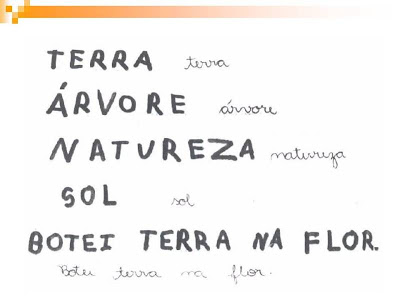 TERRA terra
ÁRVORE árvore
NATUREZA natureza
SOL sol
BOTEI TERRA NA FLOR.
Botei terra na flor.